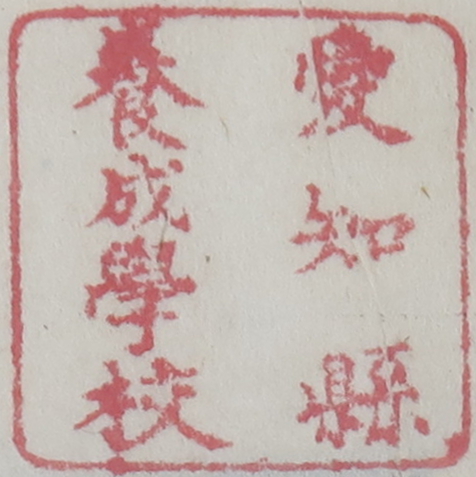 愛知縣
養成學校